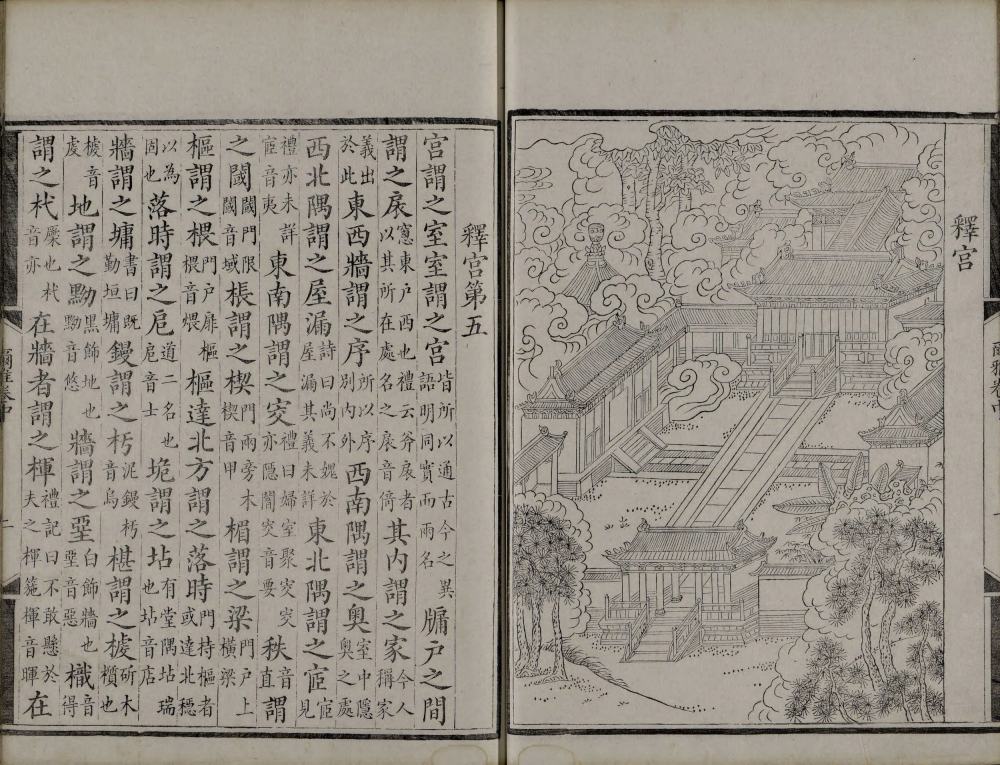 釋宮
爾雅卷中
釋宮第五
宮謂之室室謂之宮皆所以通古今之異語明同實而兩名牖戶之間
謂之扆窓東戶西也禮云斧扆者以其所在處名之扆音倚其內謂之家今人稱家
義出於此東西牆謂之序所以序別內外西南隅謂之奧室中隱奧之處
西北隅謂之屋漏詩曰尚不媿於屋漏其義未詳東北隅謂之宧宧見
禮亦未詳宧音夷東南隅謂之窔禮曰婦室聚窔窔亦隱闇窔音要秩音直謂
之閾閾門限閾音域棖謂之楔門兩旁木楔音甲楣謂之梁門戶上橫梁
樞謂之椳門戶扉樞椳音煨樞達北方謂之落時門持樞者或達北穩
以為固也落時謂之戹道二名也戹音士垝謂之坫有堂隅坫瑞也坫音店
牆謂之墉書曰既勤垣墉鏝謂之杇泥鏝杇音烏椹謂之榩斫木櫍也
榩音虔地謂之黝黑飾地也黝音悠牆謂之堊白飾牆也堊音惡樴音得
謂之杙橜也杙音亦在牆者謂之楎禮記曰不敢懸於夫之楎箷楎音暉在
爾雅卷中
二